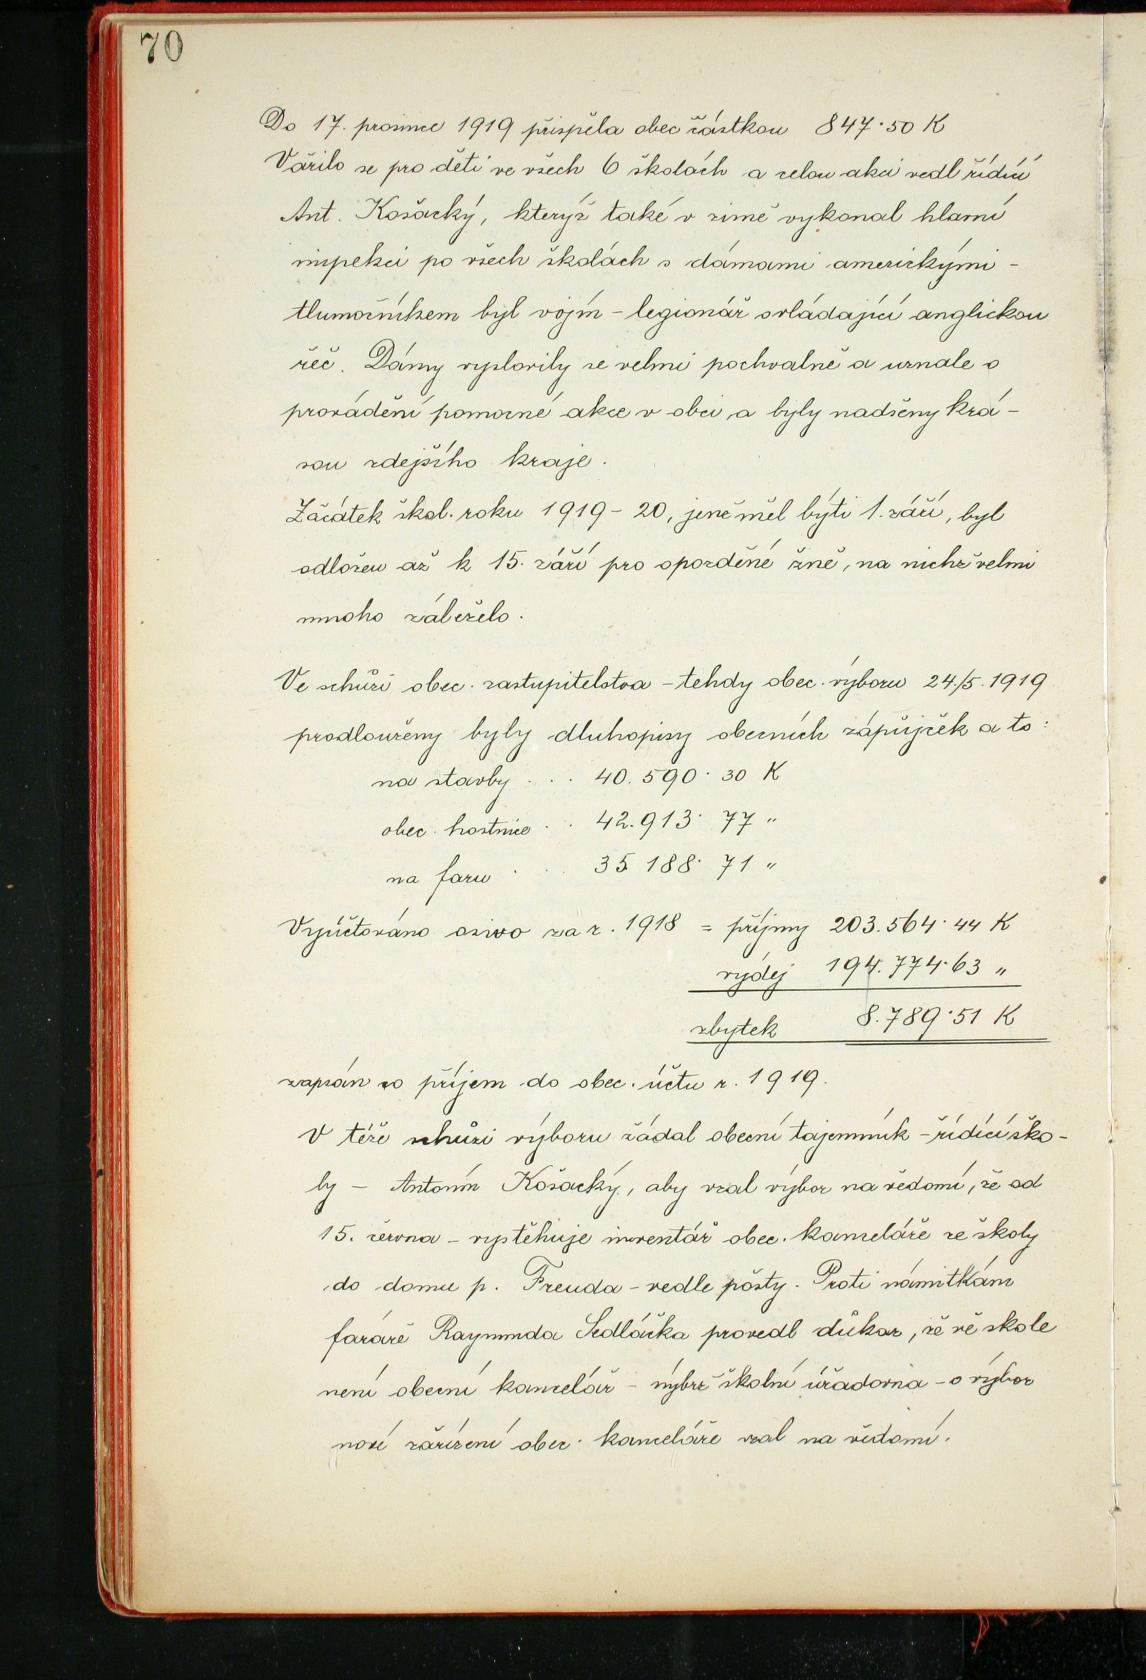 70
Do 17. prosince 1919 přispěla obec částkou 847·50 K
Vářilo se pro děti ve všech 6 školách a celou akci vedl řídící
Ant. Košacký, kterýž také v zimě vykonal hlavní
inspekci po všech školách s dámami americkými –
tlumočníkem byl vojín – legionář ovládající anglickou
řeč. Dámy vyslovily se velmi pochvalně a uznale o
provádění pomocné akce v obci a byly nadšeny krá–
sou zdejšího kraje.
Začátek škol. roku 1919 – 20, jenž měl býti 1. září, byl
odložen až k 15. září pro opozděné žně, na nichž velmi
mnoho záleželo.
Ve schůzi obec. zastupitelstva – tehdy obec. výboru 24/5. 1919
prodlouženy byly dluhopisy obecních zápůjček a to:
na stavby . . . 40.590·30 K
obec. hostince . . 42.913·77 "
na faru . . . 35 188·71 "
Vyúčtováno osivo za r. 1918 = příjmy 203.564·44 K
výdej 194.774·63 "
zbytek 8.789·51 K
zapsán co příjem do obec. účtu r. 1919.
V téže schůzi výboru žádal obecní tajemník – řídící ško–
ly – Antonín Košacký, aby vzal výbor na vědomí, že od
15. června – vystěhuje inventář obec. kanceláře ze školy
do domu p. Freuda – vedle pošty. Proti námitkám
faráře Raymunda Sedláčka provedl důkaz, že ve škole
není obecní kancelář – nýbrž školní úřadovna – a výbor
nové zařízení obec. kanceláře vzal na vědomí.